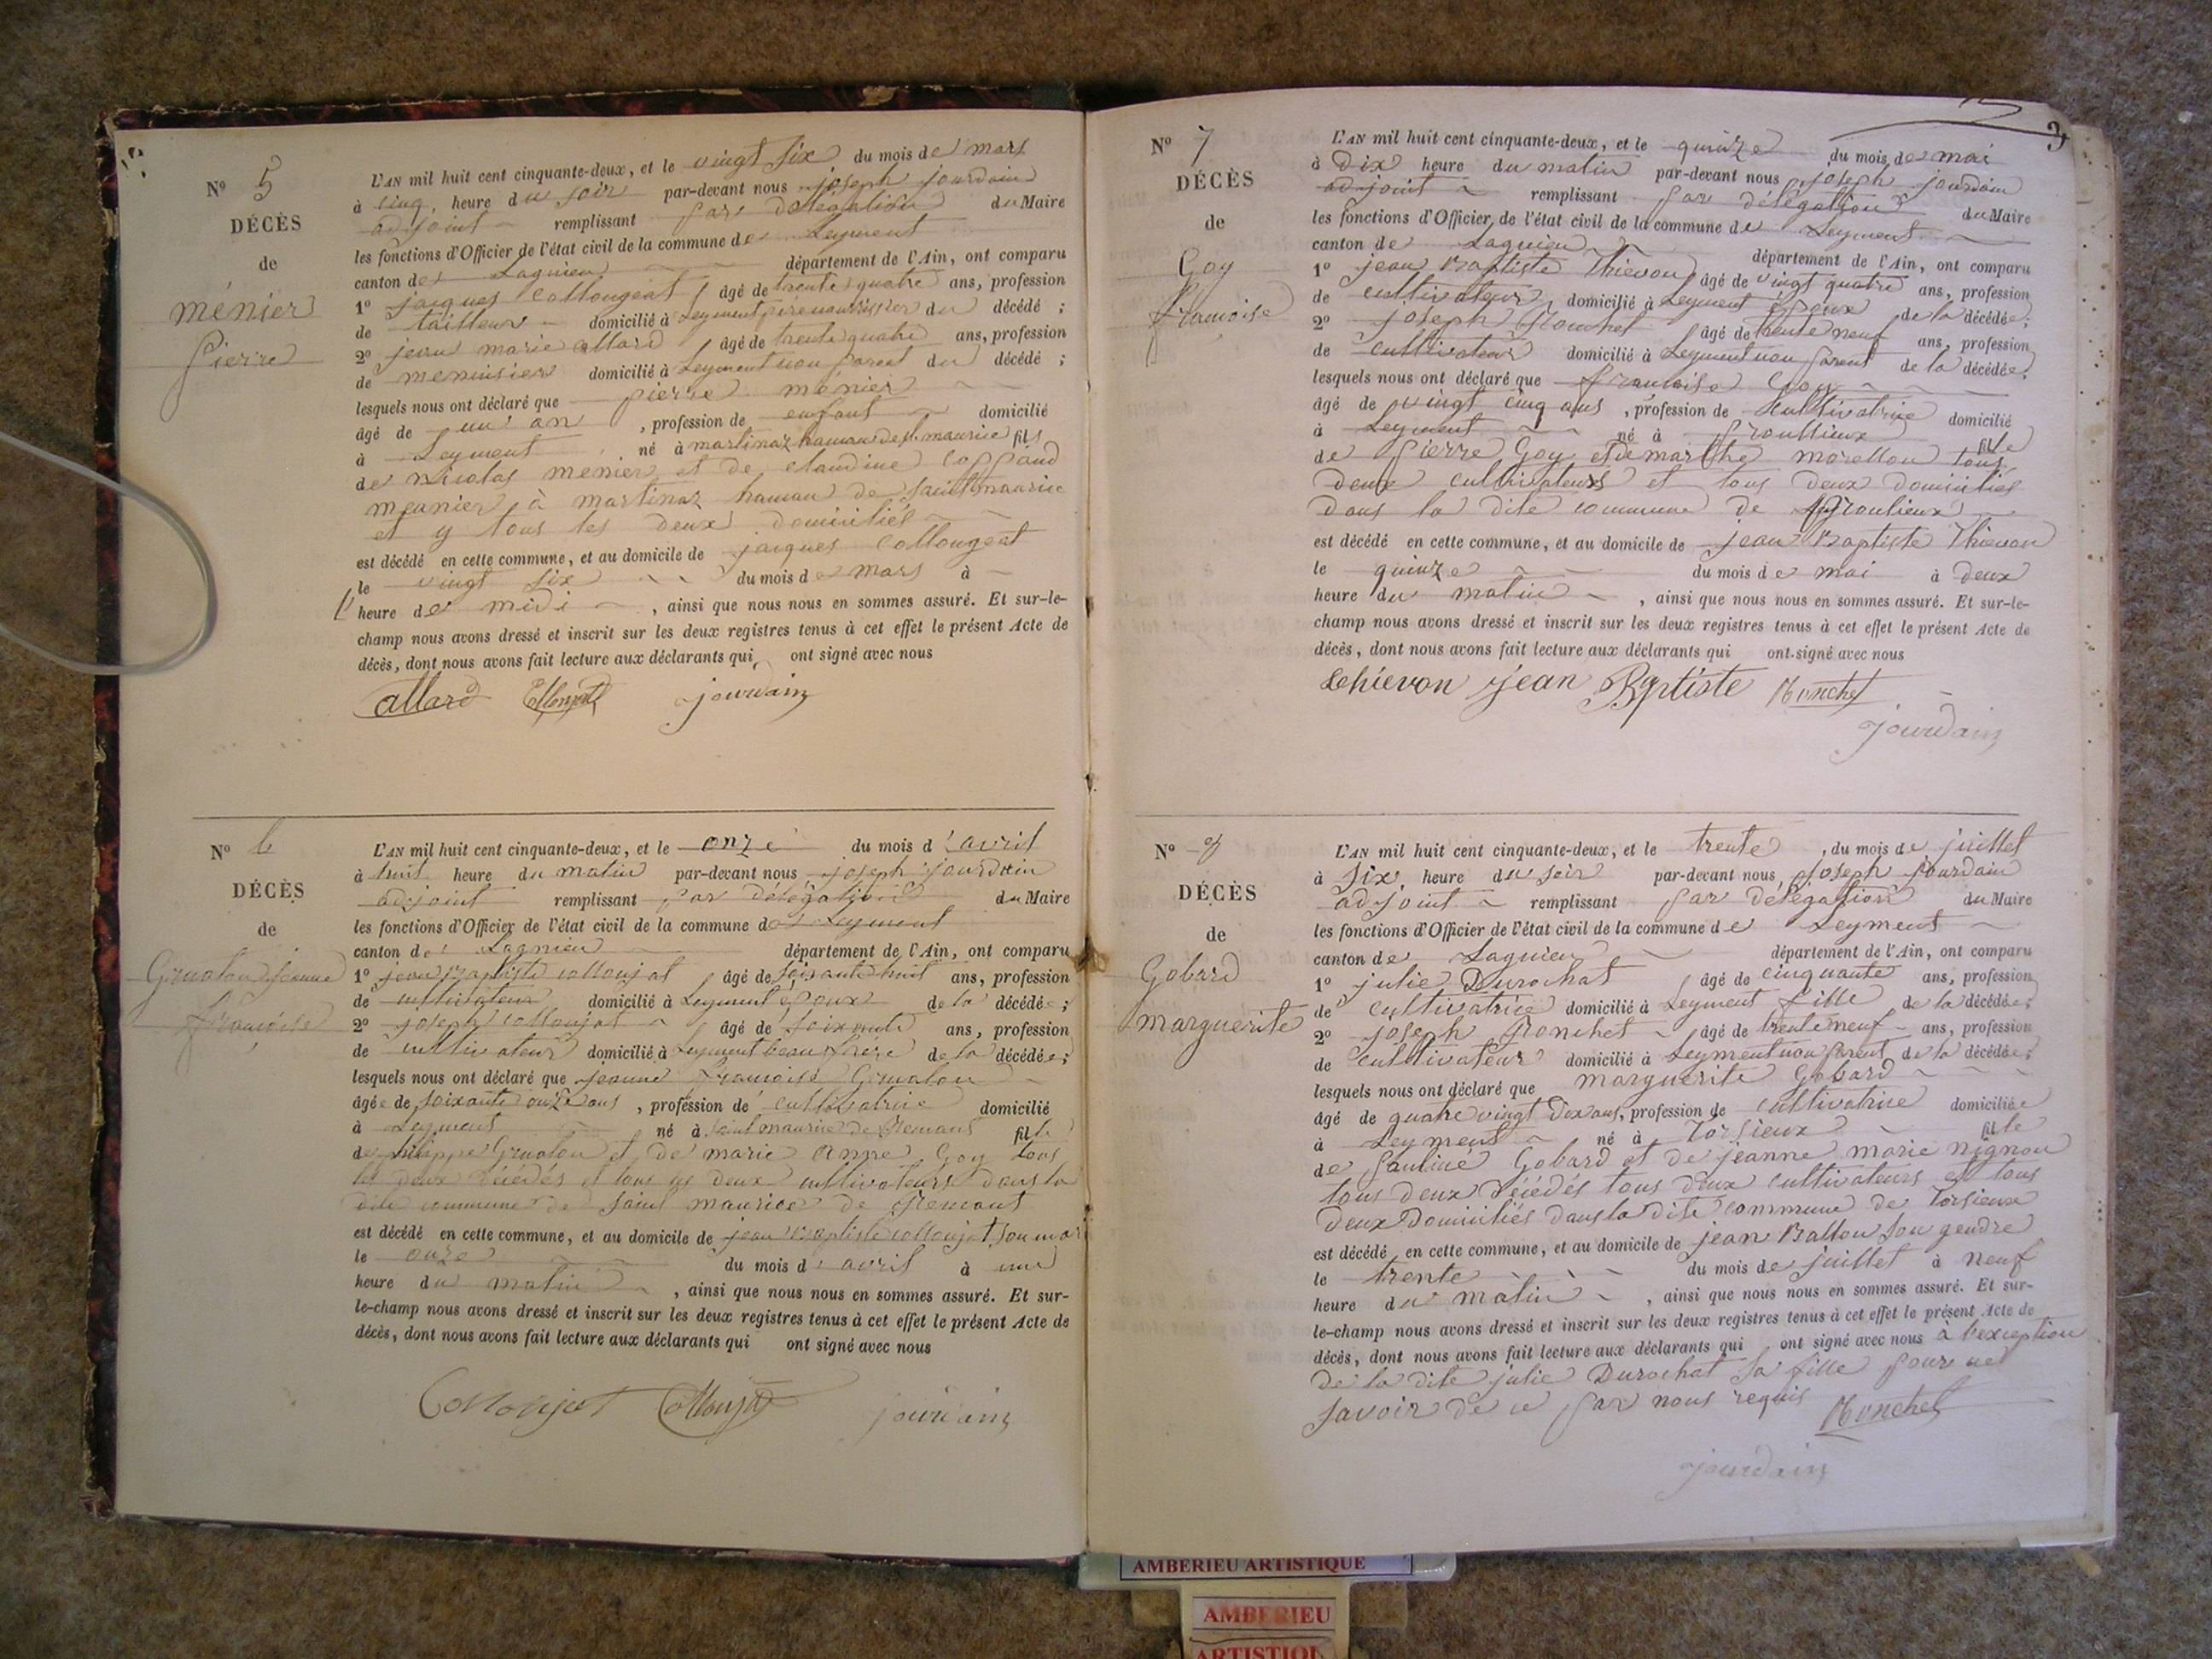 Nº 5
DÉCÈS
de
ménier
pierre
L'AN mil huit cent cinquante-deux, et le vingt six du mois de mars
à cinq heure du soir par-devant nous joseph jourdain
adjoint remplissant par délégation du Maire
les fonctions d'Officier de l'état civil de la commune de Leyment
canton de Lagnieu département de l'Ain, ont comparu
1º jacques Collongeat âgé de trente quatre ans, profession
de tailleur domicilié à Leyment père nourrissier du décédé ;
2º jean marie allard âgé de trente quatre ans, profession
de menuisier domicilié à Leyment non parent du décédé ;
lesquels nous ont déclaré que pierre ménier
âgé de un an , profession de enfant domicilié
à Leyment né à martinaz hamau de st maurice fils
de Nicolas menier et de claudine coppand
meanier à martinaz hamau de saint maurice
et y tous les deux domiciliés
est décédé en cette commune, et au domicile de jacques Collongeat
le vingt six du mois de mars à
heure de midi , ainsi que nous nous en sommes assuré. Et sur-le-
champ nous avons dressé et inscrit sur les deux registres tenus à cet effet le présent Acte de
décès, dont nous avons fait lecture aux déclarants qui ont signé avec nous
allard jourdain
Nº 6
DÉCÈS
de
jeanne
françoise
L'AN mil huit cent cinquante-deux, et le onze du mois d'avril
à huit heure du matin par-devant nous joseph jourdain
adjoint remplissant par délégation du Maire
les fonctions d'Officier de l'état civil de la commune de Leyment
canton de Lagnieu département de l'Ain, ont comparu
1º jean baptiste collonjat âgé de soixante huit ans, profession
de cultivateur domicilié à Leyment époux de la décédée ;
2º joseph collonjat âgé de soixante ans, profession
de cultivateur domicilié à Leyment beau frère de la décédée ;
lesquels nous ont déclaré que jeanne françoise
âgée de soixante onze ans , profession de cultivatrice domicilié
à Leyment né à saint maurice de Remans fille
de philippe et de marie anne Goy tous
les deux décédés et tous les deux cultivateurs dans la
dite commune de saint maurice de Remans
est décédé en cette commune, et au domicile de jean baptiste collonjat son mari
le onze du mois d'avril à une
heure du matin , ainsi que nous nous en sommes assuré. Et sur-
le-champ nous avons dressé et inscrit sur les deux registres tenus à cet effet le présent Acte de
décès, dont nous avons fait lecture aux déclarants qui ont signé avec nous
Collonjat Collonjat jourdain
3
Nº 7
DÉCÈS
de
Goy
françoise
L'AN mil huit cent cinquante-deux, et le quinze du mois de mai
à Dix heure du matin par-devant nous joseph jourdain
adjoint remplissant par délégation du Maire
les fonctions d'Officier de l'état civil de la commune de Leyment
canton de Lagnieu département de l'Ain, ont comparu
1º jean Baptiste Thievon âgé de vingt quatre ans, profession
de cultivateur domicilié à Leyment époux de la décédée ;
2º joseph Ronchet âgé de trente neuf ans, profession
de cultivateur domicilié à Leyment non parent de la décédée ;
lesquels nous ont déclaré que françoise Goy
âgé de vingt cinq ans , profession de cultivatrice domicilié
à Leyment né à proullieux fille
de pierre Goy et de marthe morellon tous
deux cultivateurs et tous deux domiciliés
dans la dite commune de proulieux
est décédé en cette commune, et au domicile de jean Baptiste Thievon
le quinze du mois de mai à deux
heure du matin , ainsi que nous nous en sommes assuré. Et sur-le-
champ nous avons dressé et inscrit sur les deux registres tenus à cet effet le présent Acte de
décès, dont nous avons fait lecture aux déclarants qui ont signé avec nous
jean Baptiste Ronchet
jourdain
Nº 8
DÉCÈS
de
Gobard
marguerite
L'AN mil huit cent cinquante-deux, et le trente , du mois de juillet
à six heure du soir par-devant nous joseph jourdain
adjoint remplissant par délégation du Maire
les fonctions d'Officier de l'état civil de la commune de Leyment
canton de Lagnieu département de l'Ain, ont comparu
1º julie Durochat âgé de cinquante ans, profession
de cultivatrice domicilié à Leyment fille de la décédée ;
2º joseph Ronchet âgé de trente neuf ans, profession
de cultivateur domicilié à Leyment non parent de la décédée ;
lesquels nous ont déclaré que marguerite Gobard
âgé de quatre vingt dix ans, profession de cultivatrice domiciliée
à Leyment né à Torsieux fille
de Gobard et de jeanne marie nignon
tous deux décédés tous deux cultivateurs et tous
deux Domiciliés dans la dite commune de Torsieux
est décédé en cette commune, et au domicile de jean Ballon son gendre
le trente du mois de juillet à neuf
heure du matin , ainsi que nous nous en sommes assuré. Et sur-
le-champ nous avons dressé et inscrit sur les deux registres tenus à cet effet le présent Acte de
décès, dont nous avons fait lecture aux déclarants qui ont signé avec nous à l'exception
de la dite julie Durochat sa fille pour ne
savoir de ce par nous requis Ronchet
jourdain
AMBERIEU ARTISTIQUE
AMBERIEU